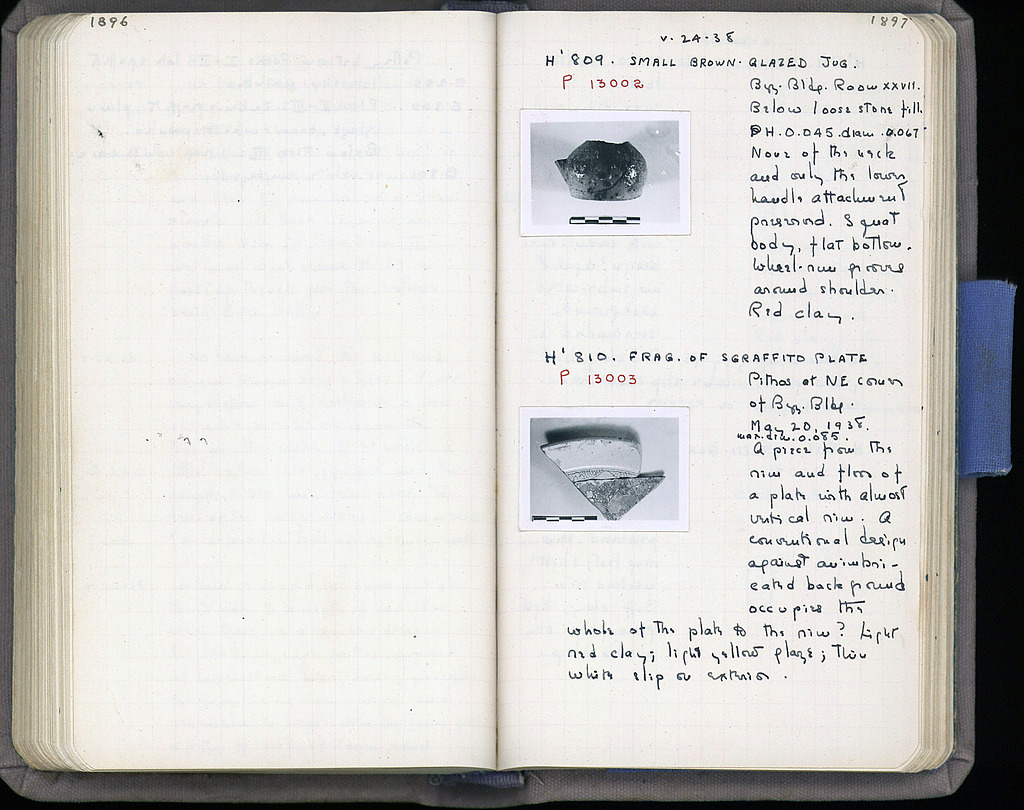 1896
1897
V-24-38
H' 809. SMALL BROWN-GLAZED JUG.
P 13002
Byz. Bldg. Room XXVII.
Below loose stone fill.
PH. 0.045. diam. 0.067
None of the neck
and only the lower
handle attachment
preserved. Squat
body, flat bottom.
Wheel-run groove
around shoulder.
Red clay.
H' 810. FRAG. OF SGRAFFITO PLATE
P 13003
Pithos at NE corner
of Byz. Bldg.
May 20, 1938.
max. dim. 0.085.
A piece from the
rim and floor of
a plate with almost
vertical rim. A
conventional design
against an imbri-
cated background
occupies the
whole of the plate to the rim? Light
red clay; light yellow glaze; Thin
white slip on exterior.